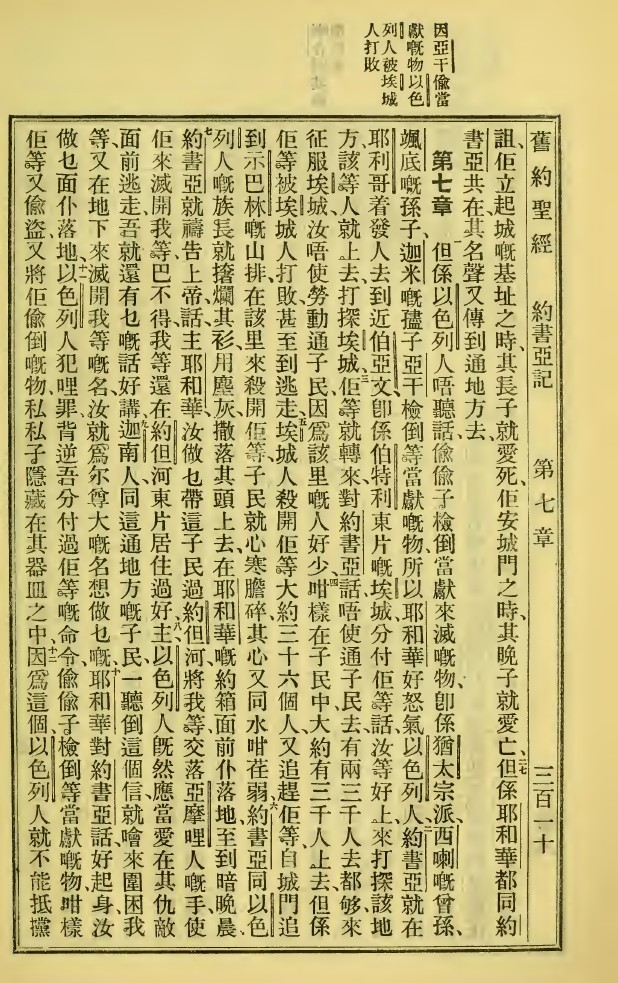 因亞干偸當
獻嘅物以色
列人被埃城
人打敗
舊約聖經 約書亞記 第七章 三百一十
詛、佢立起城嘅基址之時、其長子就愛死、佢安城門之時、其晚子就愛亡、二七但係耶和華都同約
書亞共在、其名聲又傳到通地方去、
第七章 一但係以色列人唔聽話、偸偸子檢倒當獻來滅嘅物、卽係猶太宗派、西喇嘅曾孫、
颯底嘅孫子、迦米嘅儘子、亞干檢倒等當獻嘅物、所以耶和華好怒氣以色列人、二約書亞就在
耶利哥着發人去到近伯亞文、卽係伯特利東片嘅埃城、分付佢等話、汝等好上來打探該地
方、該等人就上去打探埃城、三佢等就轉來對約書亞話、唔使通子民去、有兩三千人去都够來
征服埃城、汝唔使勞動通子民、因爲該里嘅人好少、四咁樣在子民中大約有三千人上去、但係
佢等被埃城人打敗、甚至到逃走、五埃城人殺開佢等大約三十六個人、又追趕佢等、自城門追
到示巴林嘅山排、在該里來殺開佢等、子民就心寒膽碎、其心又同水咁荏弱、六約書亞同以色
列人嘅族長、就搇爛其衫、用塵灰撒落其頭上去、在耶和華嘅約箱面前仆落地、至到暗晚晨、
七約書亞就禱告上帝話、主耶和華、汝做乜帶這子民過約但河、將我等交落亞摩哩人嘅手、使
佢來滅開我等、巴不得我等還在約但河東片居住過好、八主、以色列人旣然應當愛在其仇敵
面前逃走、吾就還有乜嘅話好講、九迦南人同這通地方嘅子民、一聽倒這個信、就噲來圍困我
等、又在地下來滅開我等嘅名、汝就爲尔尊大嘅名、想做乜嘅、十耶和華對約書亞話、好起身、汝
做乜面仆落地、十一以色列人犯哩罪、背逆吾分付過佢等嘅命令、偸偸子檢倒等當獻嘅物、咁樣
佢等又偸盜、又將佢偸倒嘅物、私私子隱藏在其器皿之中、十二因爲這個、以色列人就不能抵攩